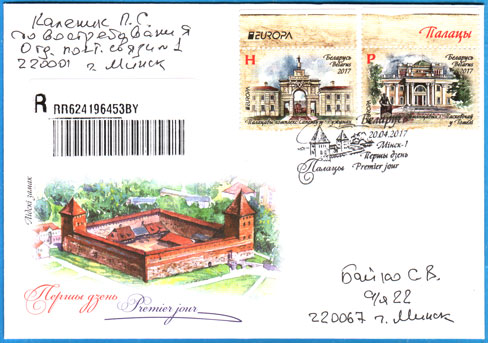 Калетик П.С.
до востребования
Отд. почт. связи 1
220001 г. Минск
R
RR624196453BY
EUROPA
Палацы
Н
Беларусь
Belarus
2017
EUROPA
Р
Беларусь
Belarus
2017
EUROPA
Беларусь
20.04.2017
Мінск-1
Першы дзень
Палацы Premier jour
Лідскі замак
Першы дзень
Premier jour
С.В.
а/я 22
220067 г. Минск